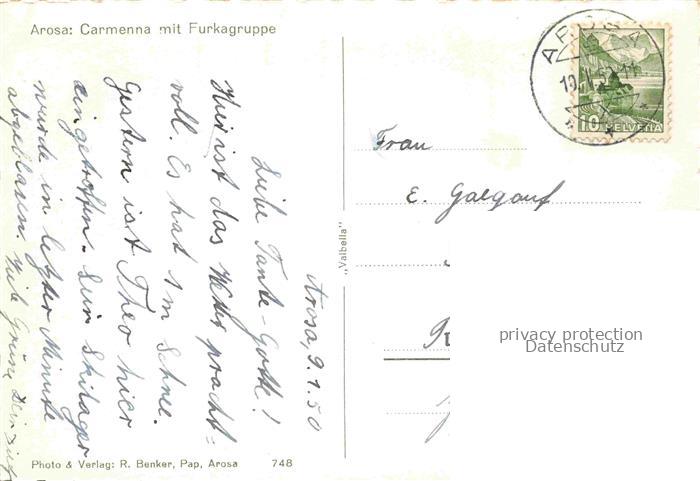 Arosa: Carmenna mit Furkagruppe
Arosa, 9.1.50
Liebe Tante-Gotte!
Hier ist das Wetter pracht=
voll. Es hat 1m Schnee.
Gestern ist Theo hier
eingetroffen. Sein Skilager
wurde in letzter Minute
abgeblasen. Viele Grüsse Dein
Photo & Verlag: R. Benker, Pap, Arosa 748
„Valbella"
AROSA
10
HELVETIA
Frau
E. Galgauf
privacy protection
Datenschutz